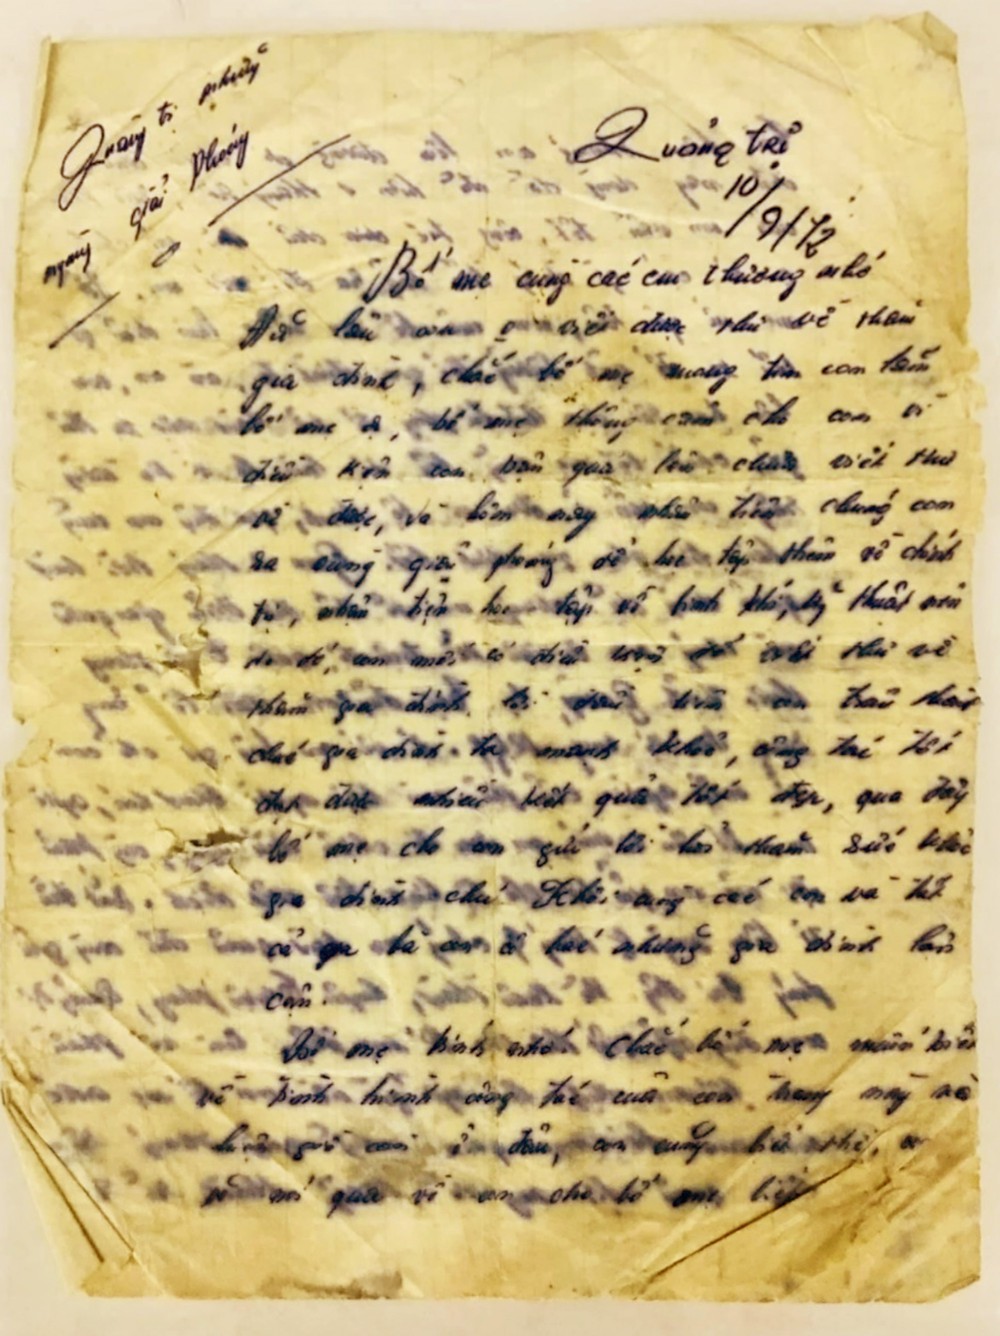 Quảng trị những
ngày giải phóng
Quảng trị
10/9/72
Bố mẹ cùng các em thương nhớ
lâu con viết được thư về thăm
gia đình, chắc bố mẹ mong tin con lắm
bố mẹ ạ, bố mẹ thông cảm cho con vì
điều kiện con bận quá lên chưa viết thư
về được, và hôm nay nhân tiện chúng con
ra vùng giải phóng để học tập thêm về chính
trị, nhân tiện học tập về binh khí, kỹ thuật nên
do đó, con mới có điều kiện để viết thư về
thăm gia đình, lời đầu tiên con
chúc gia đình ta mạnh khỏe, công tác tốt
đạt được nhiều kết quả tốt đẹp, qua đây
bố mẹ cho con gửi lời hỏi thăm sức khỏe
gia đình chú Khôi cùng các em và tất
cả bà con cô bác những gia đình lân
cận.
Bố mẹ kính nhớ. Chắc bố mẹ muốn biết
về tình hình công tác của con trong này và
hiện giờ con ở đâu, con cũng
nói qua về con cho bố mẹ biết